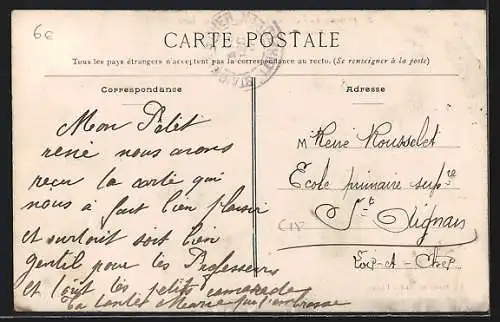 6e
CARTE POSTALE
Tous les pays étrangers n'acceptent pas la correspondance au recto. (Se renseigner à la poste)
Correspondance
Mon Petit
rené nous avons
reçu la carte qui
nous à fait bien plaisir
et surtout soit bien
gentil pour tes Professeurs
et tout tes petits camarades
ta tante Marie qui t'embrasse
Adresse
M René Rousselet
Ecole primaire supre
St Aignan
Loir-et-Cher